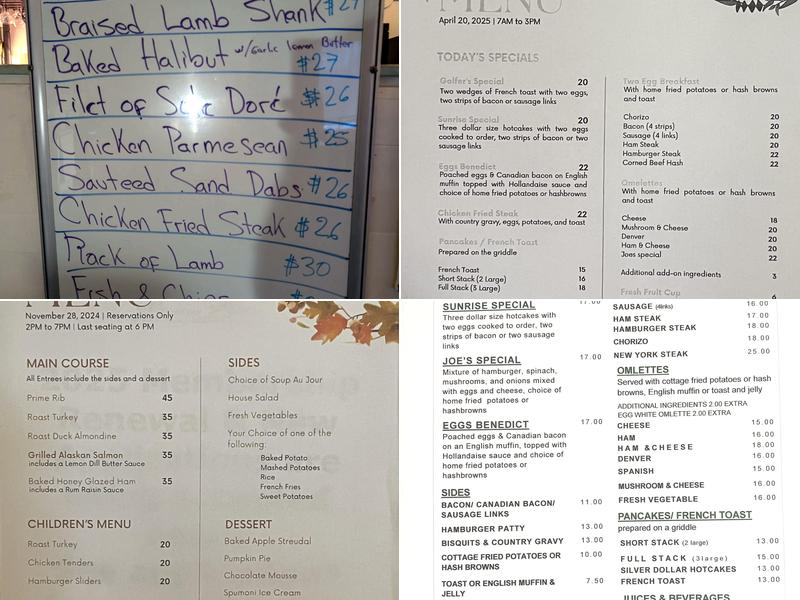 Braised Lamb Shank $27
Baked Halibut w/Garlic lemon Butter
$27
Filet of Dore $26
Chicken Parmesean $25
Sauteed Sand Dabs $26
Chicken Fried Steak $26
Rack of Lamb $30
Fish & Chips
MENU
April 20, 2025 | 7AM to 3PM
TODAY'S SPECIALS
Golfer's Special 20
Two wedges of French toast with two eggs,
two strips of bacon or sausage links
Sunrise Special 20
Three dollar size hotcakes with two eggs
cooked to order, two strips of bacon or two
sausage links
Eggs Benedict 22
Poached eggs & Canadian bacon on English
muffin topped with Hollandaise sauce and
choice of home fried potatoes or hashbrowns
Chicken Fried Steak 22
With country gravy, eggs, potatoes, and toast
Pancakes / French Toast
Prepared on the griddle
French Toast 15
Short Stack (2 Large) 16
Full Stack (3 Large) 18
Two Egg Breakfast
With home fried potatoes or hash browns
and toast
Chorizo 20
Bacon (4 strips) 20
Sausage (4 links) 20
Ham Steak 20
Hamburger Steak 22
Corned Beef Hash 22
Omelettes
With home fried potatoes or hash browns
and toast
Cheese 18
Mushroom & Cheese 20
Denver 20
Ham & Cheese 20
Joes special 22
Additional add-on ingredients 3
Fresh Fruit Cup 6
MENU
November 28, 2024 | Reservations Only
2PM to 7PM | Last seating at 6 PM
MAIN COURSE
All Entrees include the sides and a dessert
Prime Rib 45
Roast Turkey 35
Roast Duck Almondine 35
Grilled Alaskan Salmon 35
includes a Lemon Dill Butter Sauce
Baked Honey Glazed Ham 35
includes a Rum Raisin Sauce
CHILDREN'S MENU
Roast Turkey 20
Chicken Tenders 20
Hamburger Sliders 20
SIDES
Choice of Soup Au Jour
House Salad
Fresh Vegetables
Your Choice of one of the
following:
Baked Potato
Mashed Potatoes
Rice
French Fries
Sweet Potatoes
DESSERT
Baked Apple Streudal
Pumpkin Pie
Chocolate Mousse
Spumoni Ice Cream
SUNRISE SPECIAL 17.00
Three dollar size hotcakes with
two eggs cooked to order, two
strips of bacon or two sausage
links
JOE'S SPECIAL 17.00
Mixture of hamburger, spinach,
mushrooms, and onions mixed
with eggs and cheese, choice of
home fried potatoes or
hashbrowns
EGGS BENEDICT 17.00
Poached eggs & Canadian bacon
on an English muffin, topped with
Hollandaise sauce and choice of
home fried potatoes or
hashbrowns
SIDES
BACON/ CANADIAN BACON/ 11.00
SAUSAGE LINKS
HAMBURGER PATTY 13.00
BISQUITS & COUNTRY GRAVY 13.00
COTTAGE FRIED POTATOES OR 10.00
HASH BROWNS
TOAST OR ENGLISH MUFFIN & 7.50
JELLY
SAUSAGE (4links) 16.00
HAM STEAK 17.00
HAMBURGER STEAK 18.00
CHORIZO 18.00
NEW YORK STEAK 25.00
OMLETTES
Served with cottage fried potatoes or hash
browns, English muffin or toast and jelly
ADDITIONAL INGREDIENTS 2.00 EXTRA
EGG WHITE OMLETTE 2.00 EXTRA
CHEESE 15.00
HAM 16.00
HAM &CHEESE 18.00
DENVER 16.00
SPANISH 15.00
MUSHROOM & CHEESE 16.00
FRESH VEGETABLE 16.00
PANCAKES/ FRENCH TOAST
prepared on a griddle
SHORT STACK (2 large) 13.00
FULL STACK (3large) 15.00
SILVER DOLLAR HOTCAKES 13.00
FRENCH TOAST 13.00
JUICES & BEVERAGES